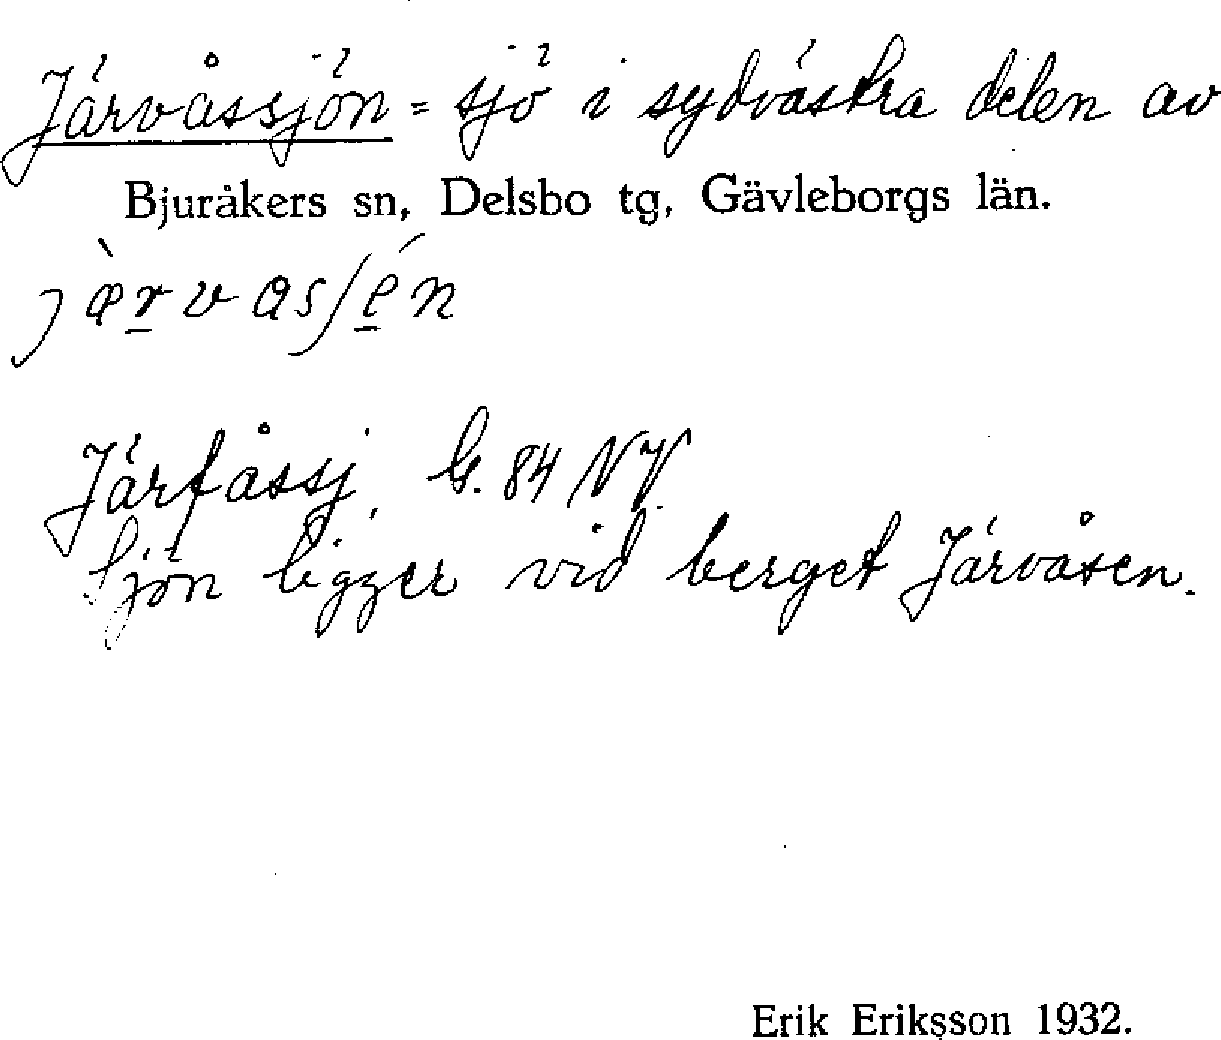 Järvåssjön = sjö i sydvästra delen av
Bjuråkers sn, Delsbo tg, Gävleborgs län.
jæ̀rvasʃén
Järfåssj. G. 84 NV.
Sjön ligger vid berget Järvåsen.
Erik Eriksson 1932.